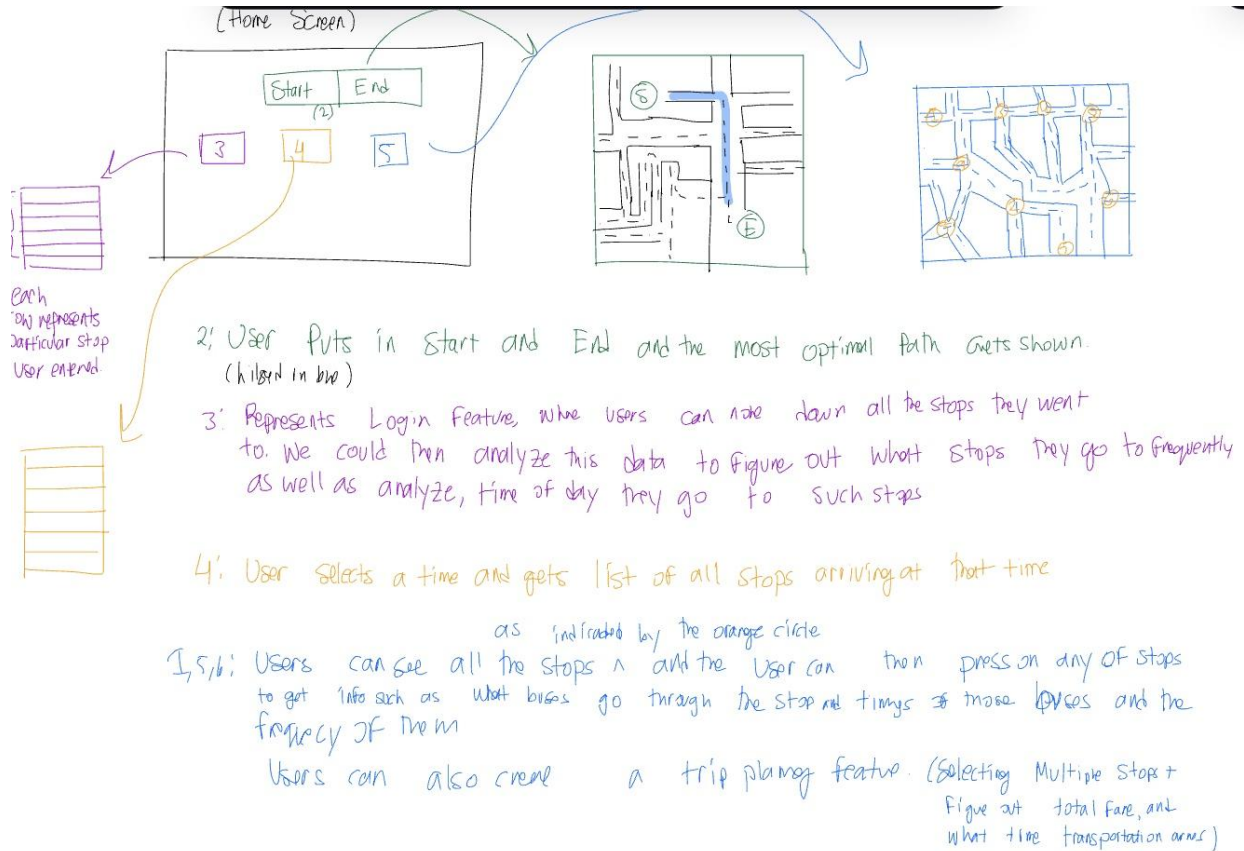 (Home Screen)
Start End
(2)
3 4 5
S
E
each
row represents
particular stop
User entered.
2: User Puts in Start and End and the most optimal Path Gets shown.
(hilited in blue)
3: Represents Login Feature, where users can note down all the stops they went
to. We could then analyze this data to figure out what stops they go to frequently
as well as analyze, time of day they go to such stops
4: User selects a time and gets list of all stops arriving at that time
as indicated by the orange circle
1,5,6: Users can see all the stops ^ and the user can then press on any of stops
to get info such as what buses go through the stop and timings of those buses and the
freqecy of them
Users can also create a trip planing feature. (Selecting Multiple Stops +
Figure out total fare, and
what time transportation arrives)